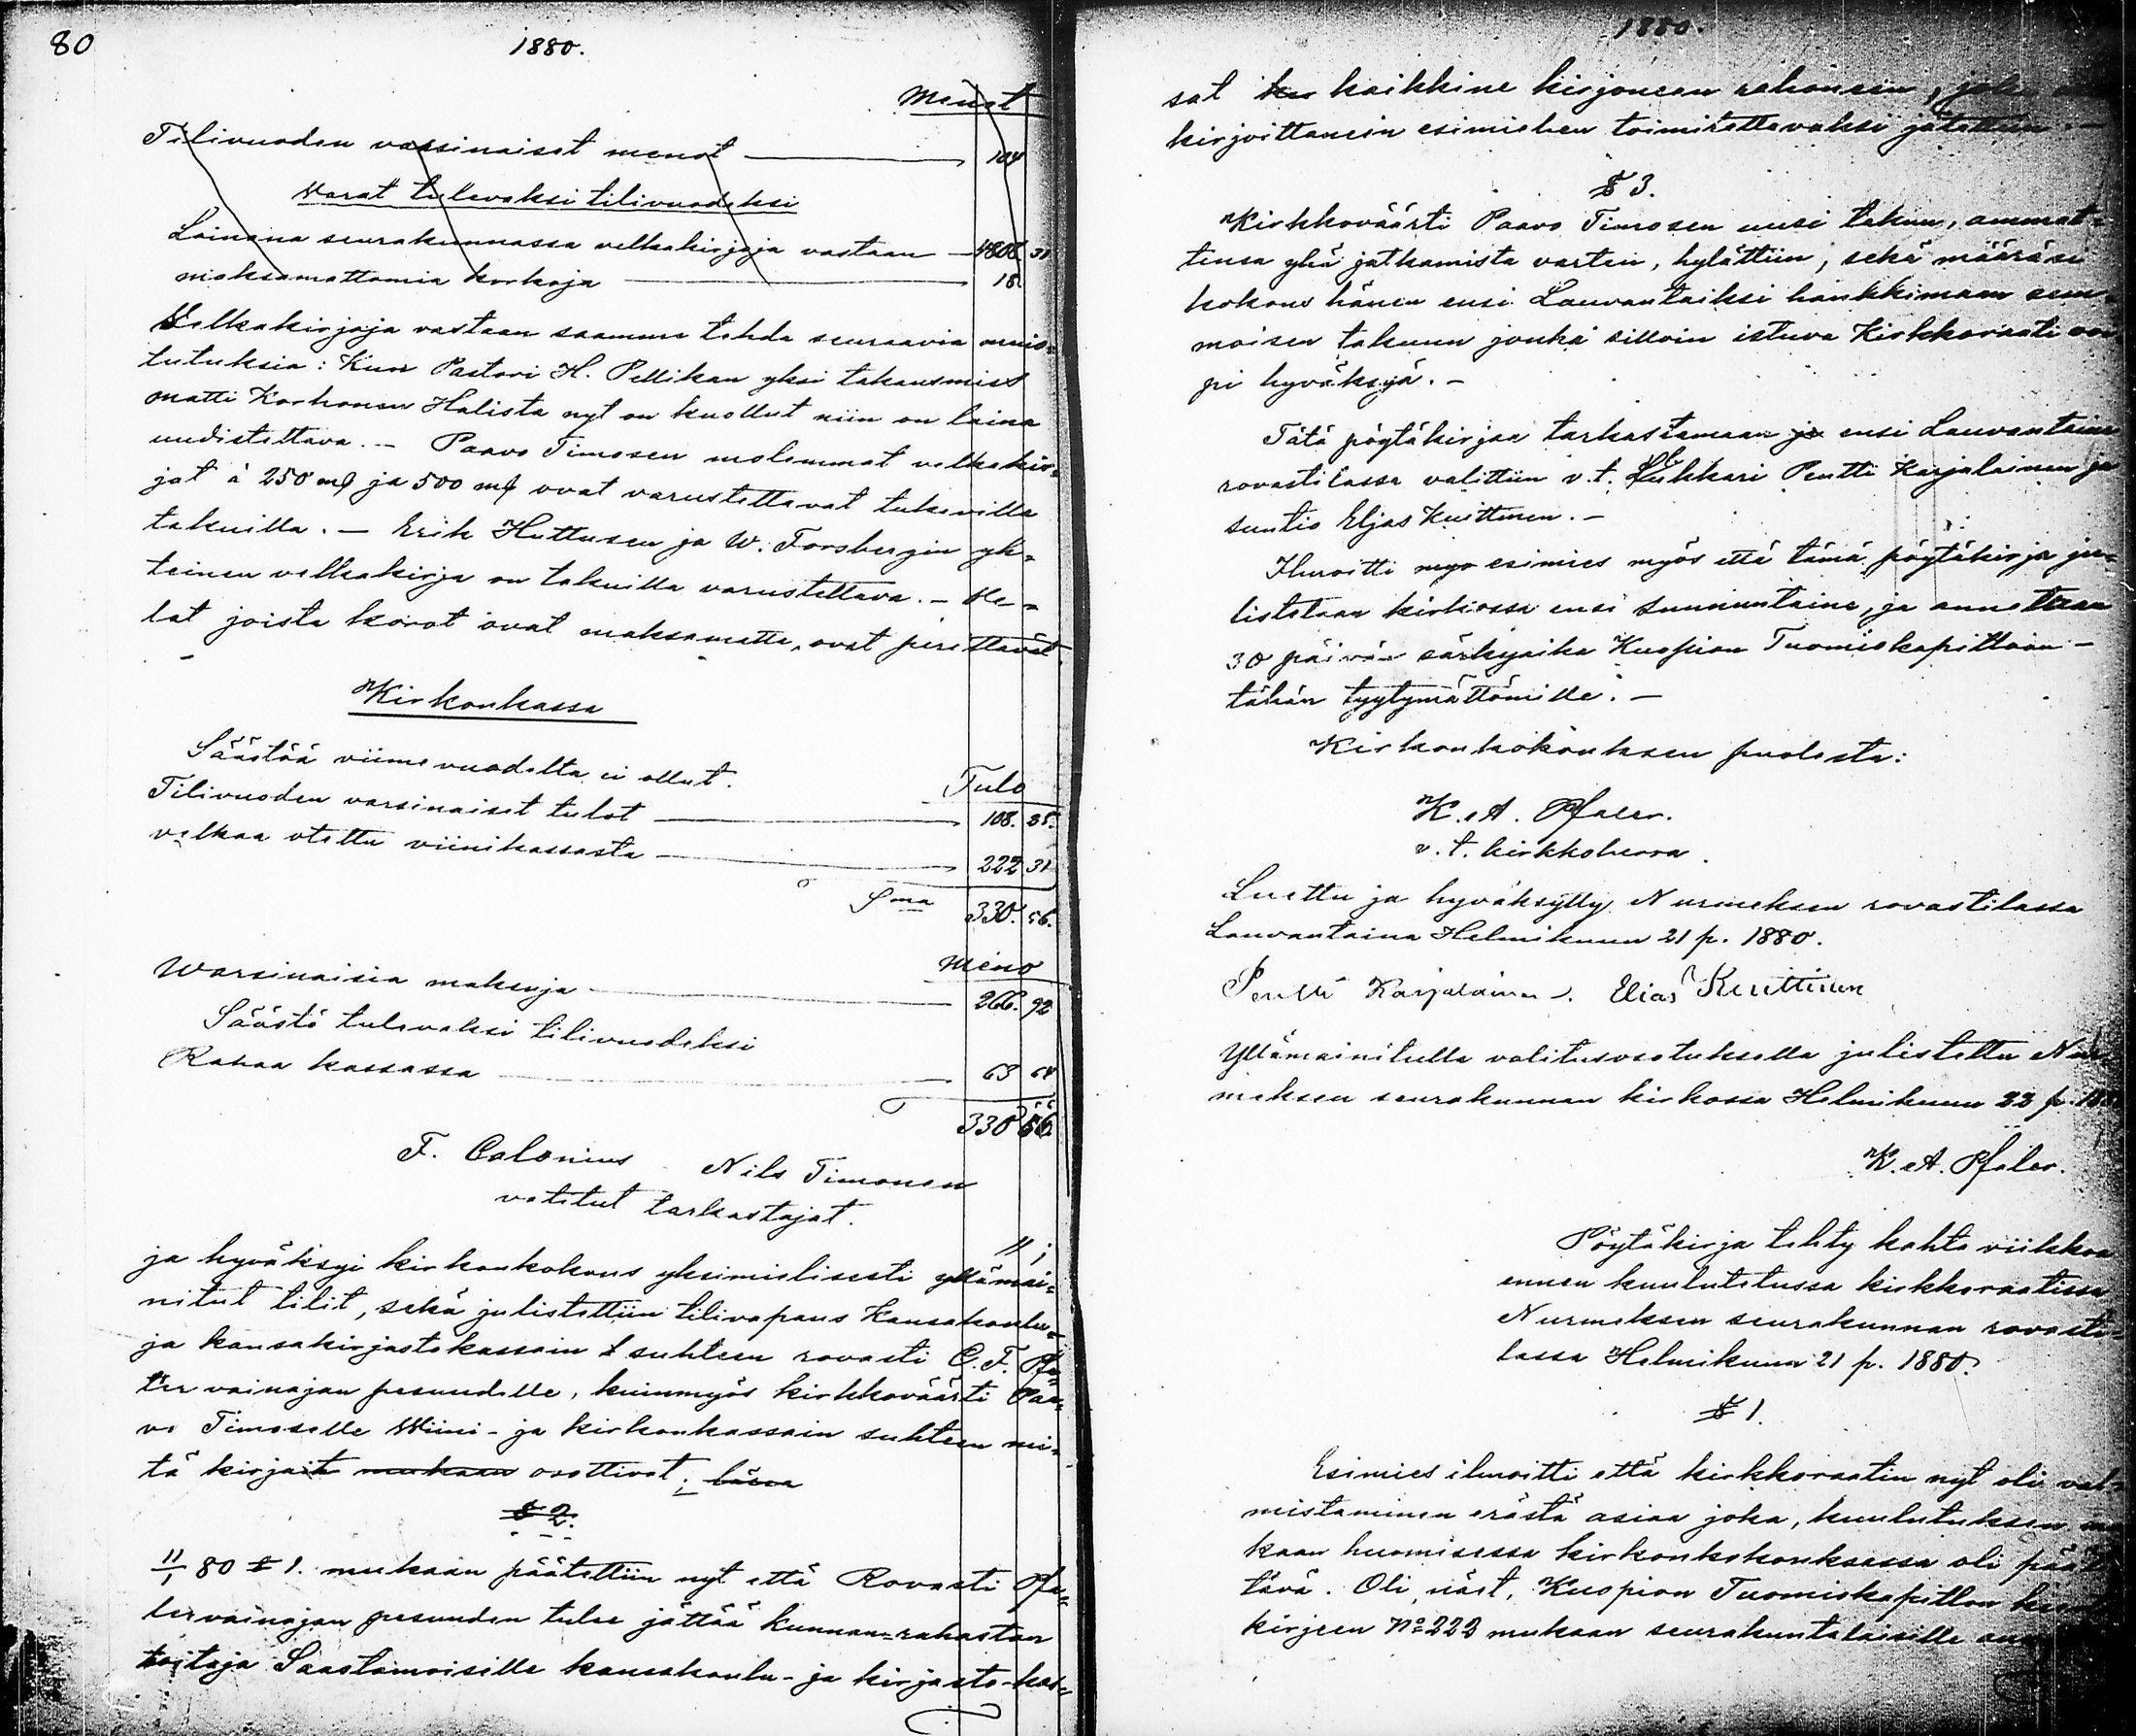 80
1880.
Menot
Tilivuoden varsinaiset menot — 104
Varat tulevaksi tilivuodeksi
Lainana seurakunnassa velkakirjoja vastaan — 4808 31
maksamattomia korkoja — 18
Velkakirjoja vastaan saamme tehdä seuraavia muis=
tutuksia: Kun Pastori H. Pellikan yksi takausmies
Matti Korhonen Halista nyt on kuollut niin on laina
uudistettava. — Paavo Timosen molemmat velkakir=
jat à 250 mk ja 500 mk ovat varustettavat tukevilla
takuilla. — Erik Huttusen ja W. Forsbergin yh=
teinen velkakirja on takuilla varustettava. — Ve=
lat joista korot ovat maksamatta, ovat perittävät.
Kirkonkassa
Säästöä viime vuodelta ei ollut.
Tulo
Tilivuoden varsinaiset tulot — 108. 25.
velkaa otettu viinikassasta — 222 31
Sma 330. 56.
Meno
Warsinaisia maksuja — 266. 92
Säästö tulevaksi tilivuodeksi
Rahaa kassassa — 63 64
330 56.
F. Calonius Nils Timonen
valitut tarkastajat.
ja hyväksyi kirkonkokous yksimielisesti yllämai=
nitut tilit, sekä julistettiin tilivapaus Kansakoulu=
ja kansakirjastokassain suhteen rovasti C. F. Pfa=
ler vainajan pesuudelle, kuinmyös kirkkoväärti Paa=
vo Timoselle Wiini- ja kirkonkassain suhteen mi=
tä kirjat mukaan osottivat;
§ 2.
11/1 80 § 1. mukaan päätettiin nyt että Rovasti Pfa=
ler vainajan pesuuden tulee jättää kunnan=rahaston
hoitaja Saastamoisille kansakoulu- ja kirjasto-kas=
1880.
sat kaikkine kirjoneen rahoneen, joka
kirjoittamisen esimiehen toimitettavaksi jätettiin. —
§ 3.
Kirkkoväärti Paavo Timosen uusi takuu, ammat=
tinsa yhä jatkamista varten, hylättiin, sekä määräsi
kokous hänen ensi Lauvantaiksi hankkimaan sem=
moisen takuun jonka silloin istuva Kirkkoraati voi
pi hyväksyä. —
Tätä pöytäkirjaa tarkastamaan ja ensi Lauvantaina
rovastilassa valittiin v.t. Lukkari Pentti Karjalainen ja
suntio Eljas Kuittinen. —
Ilmoitti myo esimies myös että tämä pöytäkirja ju=
listetaan kirkossa ensi sunnuntaina, ja annetaan
30 päivän Kuopion Tuomiokapittoliin —
tähän tyytymättömille. —
Kirkonkokouksen puolesta:
K. A. Pfaler.
v. t. kirkkoherra.
Luettu ja hyväksytty Nurmeksen rovastilassa
Lauvantaina Helmikuun 21 p. 1880.
Pentti Karjalainen. Elias Kuittinen
Yllämainitulla valitusosotuksella julistettu Nur=
meksen seurakunnan kirkossa Helmikuun 22 p. 1880
K. A. Pfaler.
Pöytäkirja tehty kahta viikkoa
ennen kuulutetussa kirkkoraatissa
Nurmeksen seurakunnan rovasti=
lassa Helmikuun 21 p. 1880.
§ 1.
Esimies ilmoitti että kirkkoraatin nyt oli val=
mistaminen erästä asiaa joka, kuulutuksen mu
kaan huomisessa kirkonkokouksessa oli päät
tävä. Oli näet, Kuopion Tuomiokapitlon
kirjeen No 222 mukaan seurakuntalaisille